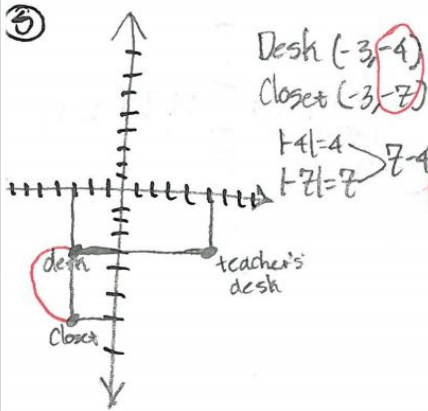 5
Desk (-3,-4)
Closet (-3,-7)
|-4|=4
|-7|=7
7-4
desk
teacher's
desk
Closet